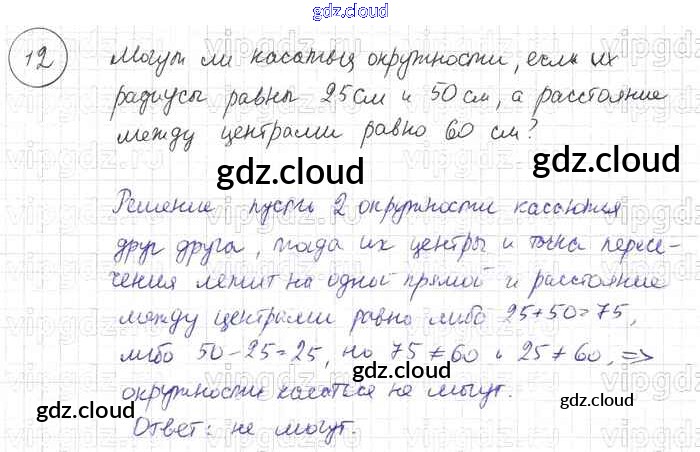 gdz.cloud
12
Могут ли касаться окружности, если их
радиусы равны 25см и 50см, а расстояние
между центрами равно 60 см?
gdz.cloud
gdz.cloud
Решение пусть 2 окружности касаются
друг друга, тогда их центры и точка пересе-
чения лежит на одной прямой и расстояние
между центрами равно либо 25+50=75,
либо 50-25=25, но 75≠60 и 25≠60, =>
gdz.cloud
окружности касаться не могут.
gdz.cloud
gdz.cloud
Ответ: не могут.